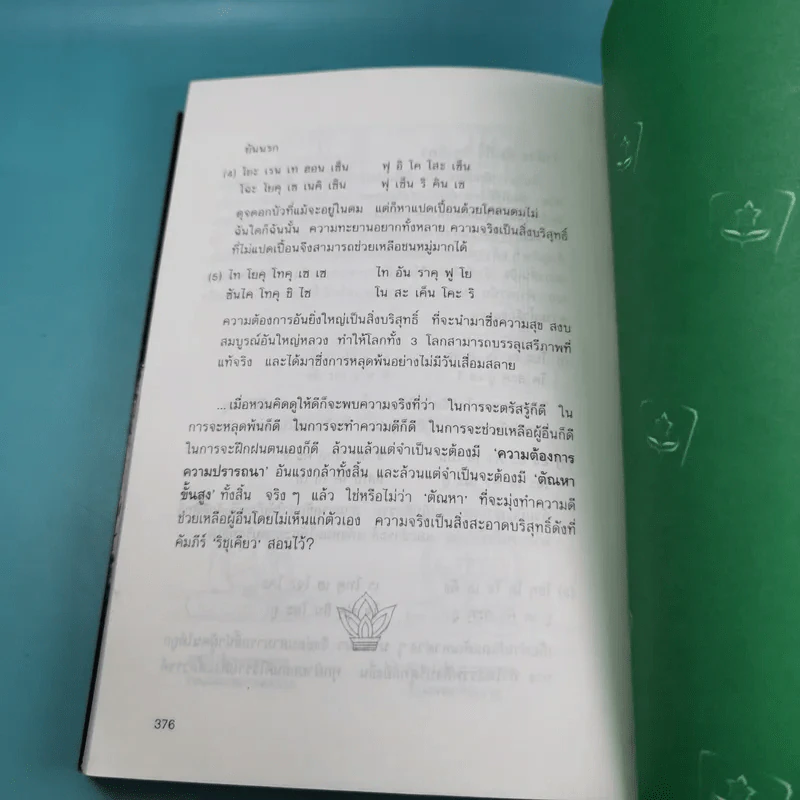 ยันนรก
(4) โยะ เรน เท ฮอน เซ็น ฟุ อิ โค โสะ เซ็น
โจะ โยคุ เซ เนคิ เซ็น ฟุ เซ็น ริ คิน เซ
ดุจดอกบัวที่แม้จะอยู่ในตม แต่ก็หาแปดเปื้อนด้วยโคลนตมไม่
ฉันใดก็ฉันนั้น ความทะยานอยากทั้งหลาย ความจริงเป็นสิ่งบริสุทธิ์
ที่ไม่แปดเปื้อนจึงสามารถช่วยเหลือชนหมู่มากได้
(5) ไท โยคุ โทคุ เซ เซ ไท อัน ราคุ ฟู โย
ซันไค โทคุ ชิ ไซ โน สะ เค็น โคะ ริ
ความต้องการอันยิ่งใหญ่เป็นสิ่งบริสุทธิ์ ที่จะนำมาซึ่งความสุข สงบ
สมบูรณ์อันใหญ่หลวง ทำให้โลกทั้ง 3 โลกสามารถบรรลุเสรีภาพที่
แท้จริง และได้มาซึ่งการหลุดพ้นอย่างไม่มีวันเสื่อมสลาย
...เมื่อหวนคิดดูให้ดีก็จะพบความจริงที่ว่า ในการจะตรัสรู้ก็ดี ใน
การจะหลุดพ้นก็ดี ในการจะทำความดีก็ดี ในการจะช่วยเหลือผู้อื่นก็ดี
ในการจะฝึกฝนตนเองก็ดี ล้วนแล้วแต่จำเป็นจะต้องมี 'ความต้องการ
ความปรารถนา' อันแรงกล้าทั้งสิ้น และล้วนแต่จำเป็นจะต้องมี 'ตัณหา
ขั้นสูง' ทั้งสิ้น จริง ๆ แล้ว ใช่หรือไม่ว่า 'ตัณหา' ที่จะมุ่งทำความดี
ช่วยเหลือผู้อื่นโดยไม่เห็นแก่ตัวเอง ความจริงเป็นสิ่งสะอาดบริสุทธิ์ดังที่
คัมภีร์ 'ริชุเคียว' สอนไว้?
376